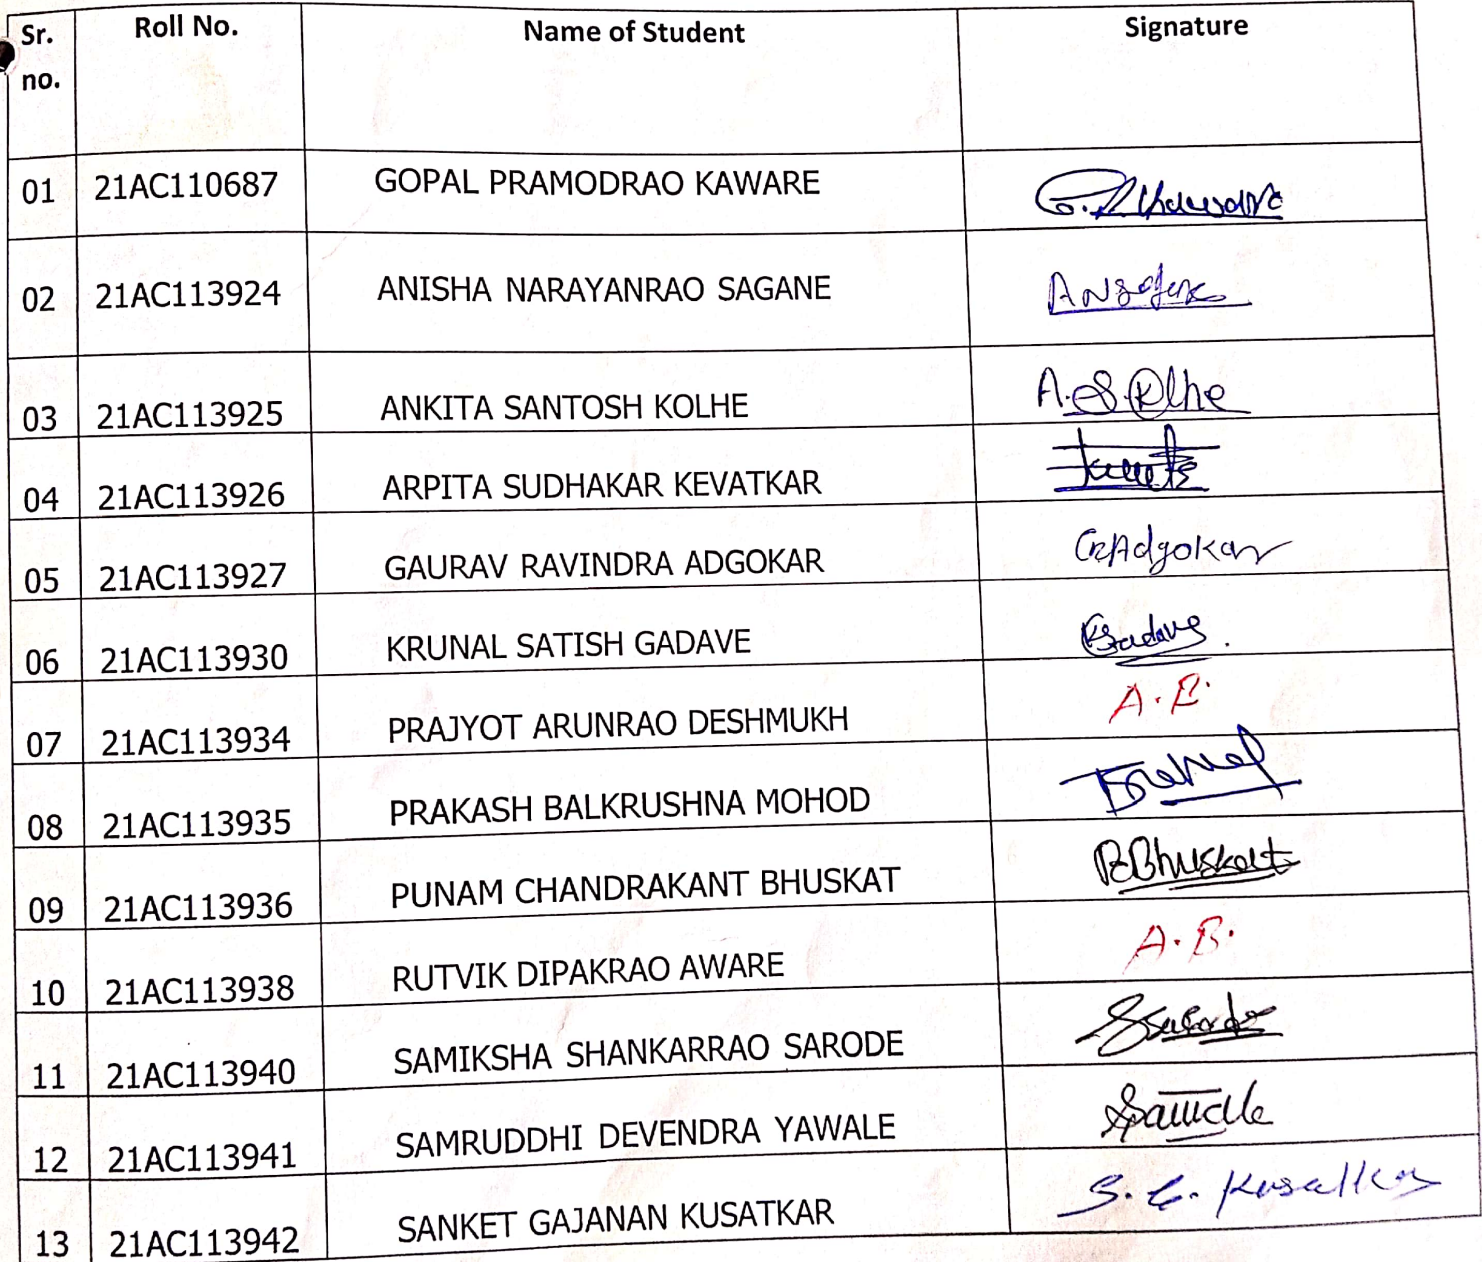 Sr. no. Roll No. Name of Student Signature
01 21AC110687 GOPAL PRAMODRAO KAWARE
02 21AC113924 ANISHA NARAYANRAO SAGANE
03 21AC113925 ANKITA SANTOSH KOLHE A.S.Kolhe
04 21AC113926 ARPITA SUDHAKAR KEVATKAR
05 21AC113927 GAURAV RAVINDRA ADGOKAR GRAdgokar
06 21AC113930 KRUNAL SATISH GADAVE
07 21AC113934 PRAJYOT ARUNRAO DESHMUKH A.B.
08 21AC113935 PRAKASH BALKRUSHNA MOHOD
09 21AC113936 PUNAM CHANDRAKANT BHUSKAT PBhuskat
10 21AC113938 RUTVIK DIPAKRAO AWARE A.B.
11 21AC113940 SAMIKSHA SHANKARRAO SARODE
12 21AC113941 SAMRUDDHI DEVENDRA YAWALE
13 21AC113942 SANKET GAJANAN KUSATKAR S. G. Kusatkar